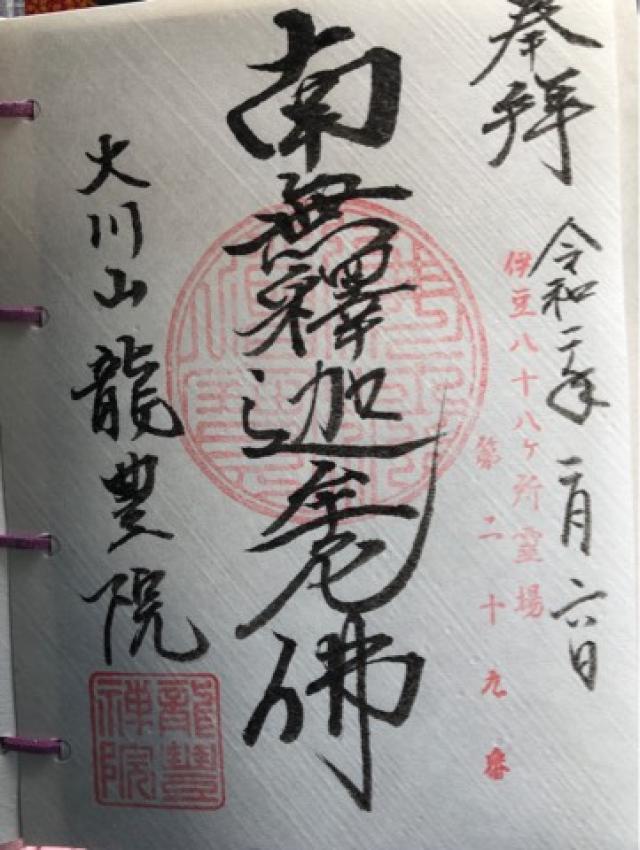 奉拝
令和二年二月六日
伊豆八十八ヶ所霊場
第二十九番
南無釋迦牟尼佛
大川山龍豊院
龍豊
禅院